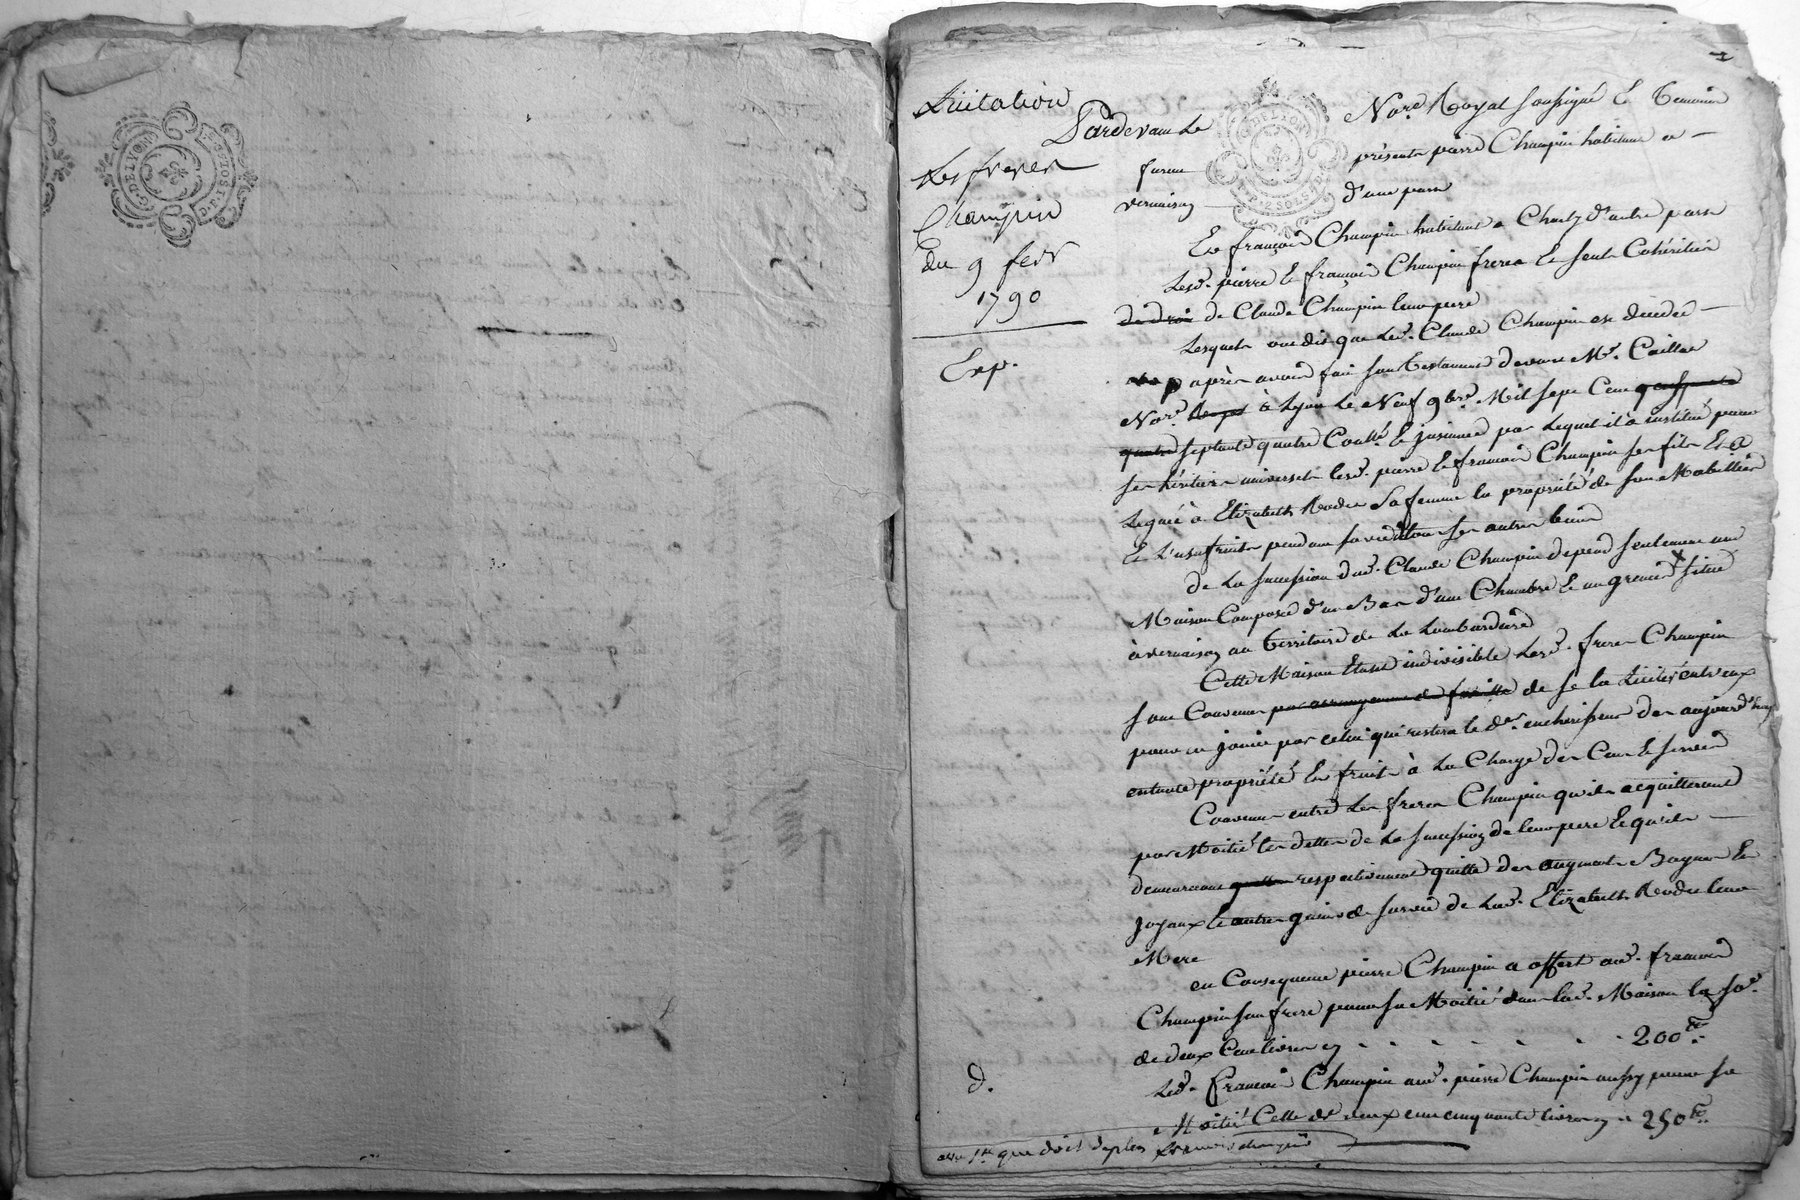 G. DE LYON
Licitation
Pardevant Le Nore. Royal soussigné Et Temoins
Les freres
Champin
du 9 fevr
1790
Exp.
furent présents pierre Champin habitant a
vernaison d'une part
Et françois Champin habitant a Charly d'autre part
Lesd. pierre Et françois Champin freres Et seuls Cohéritiers
de droit de Claude Champin leur pere
Lesquels ont dit que Led. Claude Champin est decedé
après avoir fait son Testament devant Me. Caillat
Nore. Royal à Lyon Le Neuf 9bre. Mil sept Cent
quatre septante quatre Contlé. Et insinué par Lequel il a institué pour
ses héritiers universels lesd. pierre Et françois Champin ses fils Et a
Legué à Elizabeth sa femme la propriété de son Mobillier
Et L'usufruit pendant sa vie de tous ses autres biens
de La succession dud. Claude Champin depend seulement une
Maison Composée d'un Bas d'une Chambre Et un grenier situé
à vernaison au Territoire de La Lombardiere
Cette Maison Etant indivisible Lesd. freres Champin
sont Convenus par arrangement de famille de se la Liciter entr'eux
pour en jouir par celui qui restera le der. encherisseur des aujourd'huy
en toute propriété Et fruits à La Charge des Cens Et servis
Convenu entre Les freres Champin qu'ils acquitteront
par Moitié les dettes de La succession de leur pere Et qu'ils
demeureront respectivement quitte des augment Bagues Et
joyaux Et autres gains de survie de Lad. Elizabeth leur
Mere
en Consequence pierre Champin a offert aud. françois
Champin son frere pour sa Moitié dans lad. Maison la se.
de deux Cent livres cy . . . . . . 200ll.
d.
Led. françois Champin aud. pierre Champin aussy pour sa
Moitié Celle de deux cent cinquante livres cy .. 250ll.